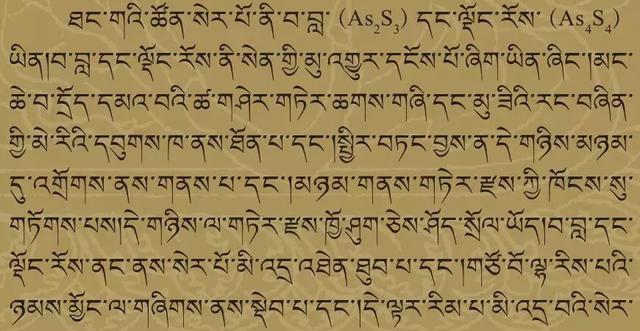 ཐང་གའི་ཚོན་སེར་པོ་ནི་བ་བླ་ (As₂S₃) དང་ལྡོང་རོས་ (As₄S₄)
ཡིན།བ་བླ་དང་ལྡོང་རོས་ནི་སེན་གྱི་མུ་འགྱུར་དངོས་པོ་ཞིག་ཡིན་ཞིང་།མང་
ཆེ་བ་དྲོད་དམའ་བའི་ཚ་གཤེར་གཏེར་ཆགས་གཞི་དང་མུ་ཟིའི་རང་བཞིན་
གྱི་མེ་རིའི་དབུགས་ཁ་ནས་ཐོན་པ་དང་།སྤྱིར་བཏང་བྱས་ན་དེ་གཉིས་མཉམ་
དུ་འགྲོགས་ནས་གནས་པ་དང་།མཉམ་གནས་གཏེར་རྫས་ཀྱི་ཁོངས་སུ་
གཏོགས་པས།དེ་གཉིས་ལ་གཏེར་རྫས་ཁྱོ་ཤུག་ཅེས་ཤོད་སྲོལ་ཡོད།བ་བླ་དང་
ལྡོང་རོས་ནང་ནས་སེར་པོ་མི་འདྲ་འཐེན་ཐུབ་པ་དང་།གཙོ་བོ་ལྷ་རིས་པའི་
ཉམས་མྱོང་ལ་གཞིགས་ནས་སྡེབ་པ་དང་།དེ་ལྟར་རིམ་པ་མི་འདྲ་བའི་སེར་